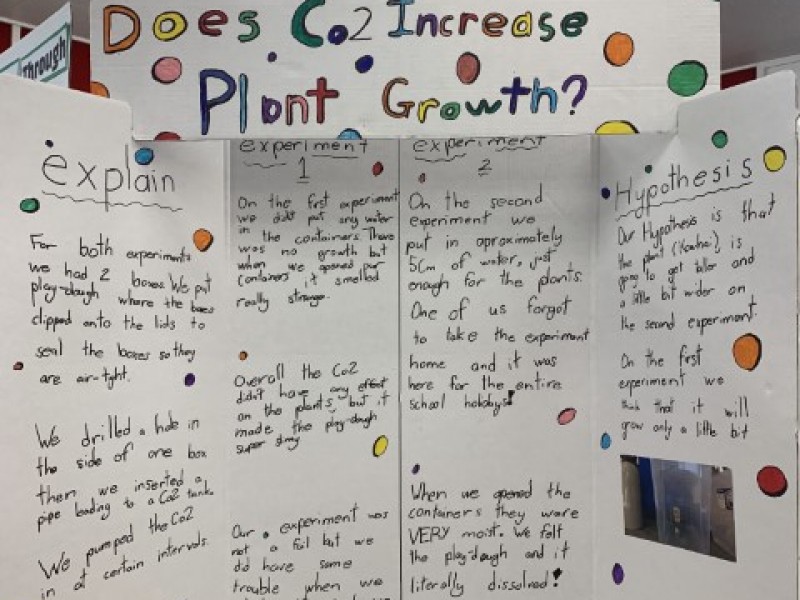 Through
Does Co2 Increase
Plant Growth?
explain
For both experiments
we had 2 boxes. We put
play-dough where the boxes
clipped onto the lids to
seal the boxes so they
are air-tight.
We drilled a hole in
the side of one box
then we inserted a
pipe leading to a Co2 tank.
We pumped the Co2
in at certain intervals.
experiment
1
On the first experiment
we didnt put any water
in the containers. There
was no growth but
when we opened our
containers it smelled
really strange.
Overall the Co2
didn't have any effect
on the plants, but it
made the play-dough
super slimy
Our experiment was
not a fail but we
did have some
trouble when we
experiment
2
On the second
experiment we
put in aproximately
5cm of water, just
enough for the plants.
One of us forgot
to take the experiment
home and it was
here for the entire
school holidays!
When we opened the
containers they were
VERY moist. We felt
the play-dough and it
literally dissolved!
Hypothesis
Our Hypothesis is that
the plant is
going to get taller and
a little bit wider on
the second experiment.
On the first
experiment we
think that it will
grow only a little bit